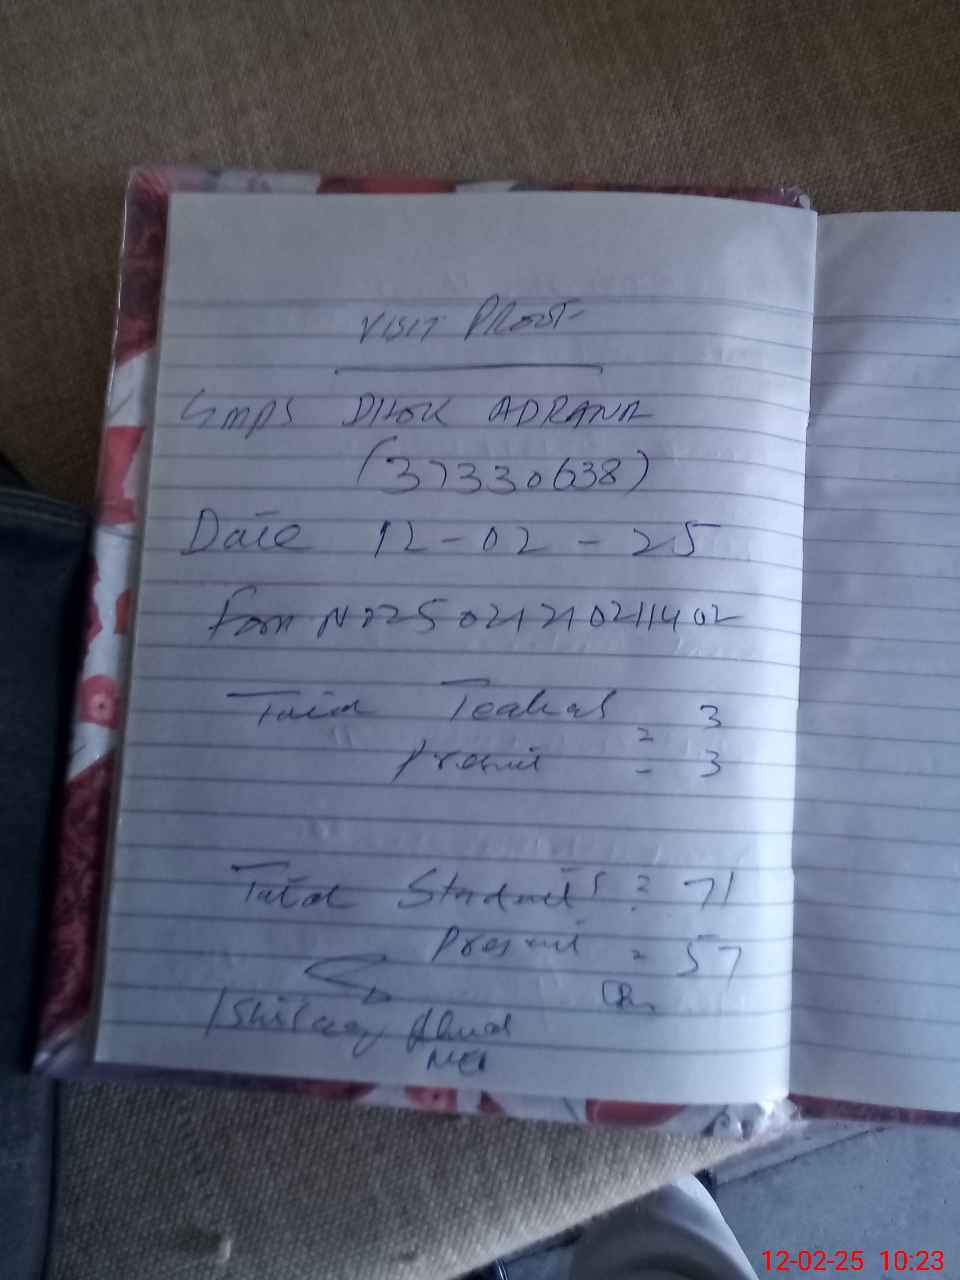 VISIT PROOF
GMPS DHOK ADRANA
(37330638)
Date 12-02-25
Form No 25021210211402
Total Teachers = 3
Present - 3
Total Students = 71
Present = 57
Ishtiaq Ahmad
MEA
12-02-25 10:23